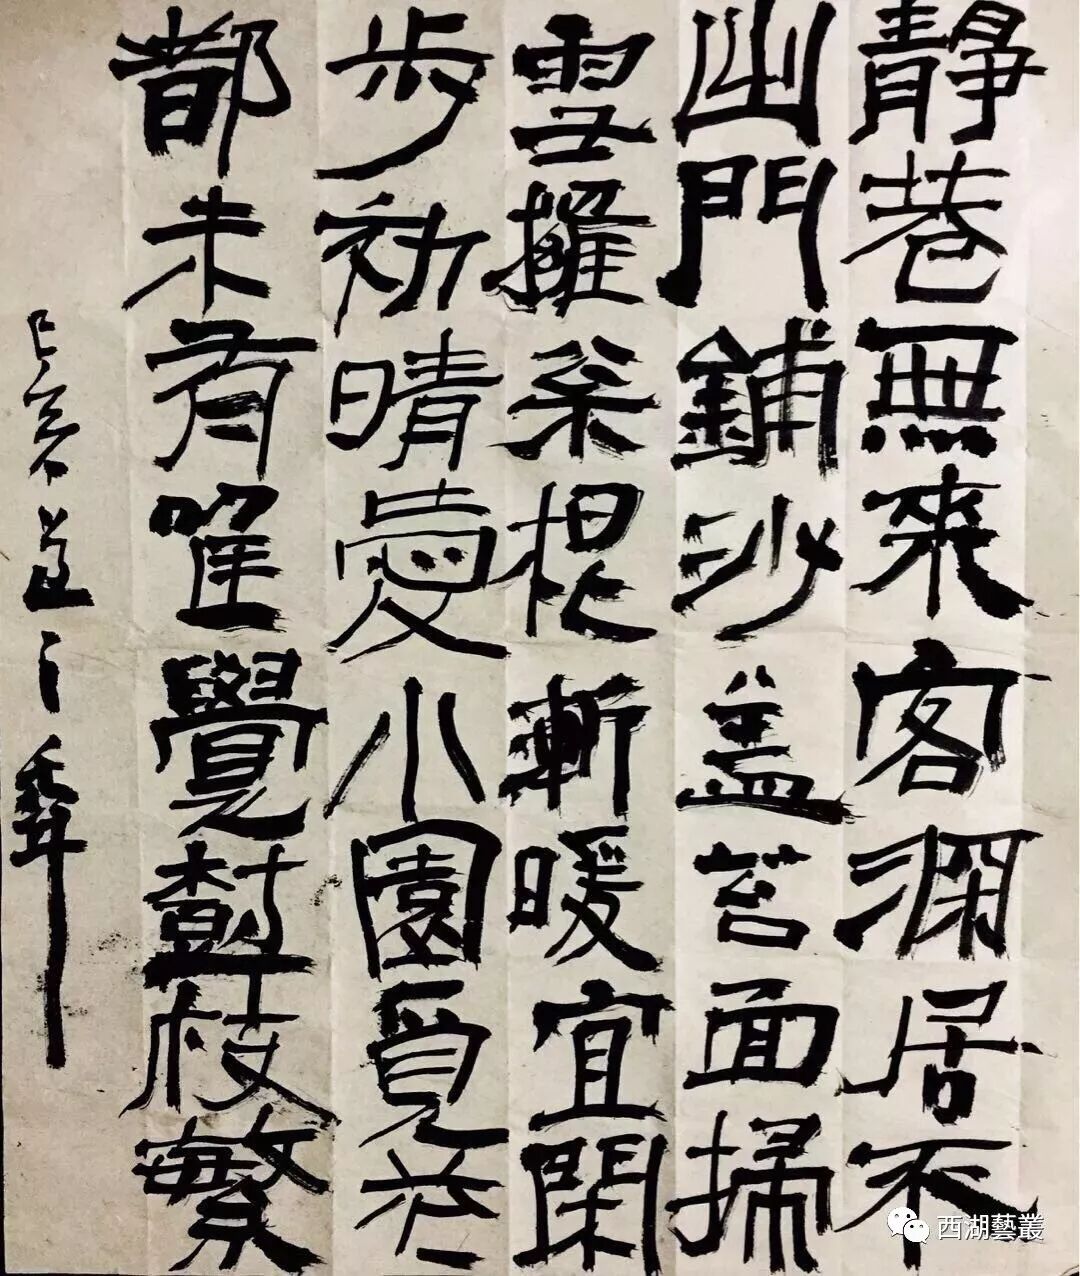 靜巷無來客深居不
出門鋪沙盖苔面掃
雪擁枀根漸暖宜閑
步初晴愛小園覓花
都未有唯覺樹枝繁
己亥
西湖藝叢